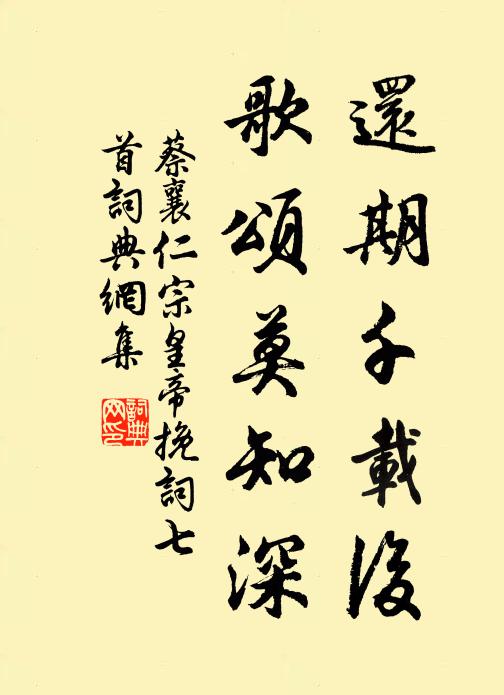 還期千載後
歌頌莫知深
蔡襄仁宗皇帝挽詞七
首詞典網集
詞典
网印